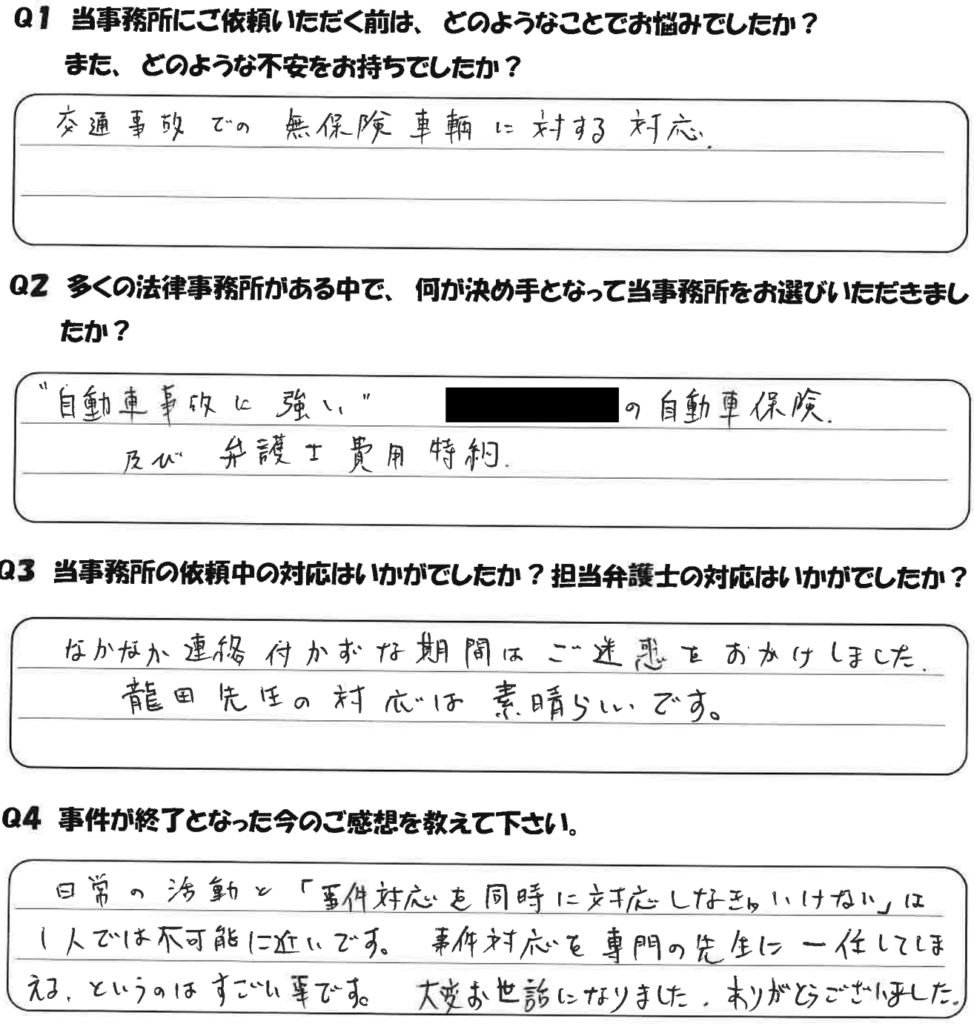 Q1 当事務所にご依頼いただく前は、どのようなことでお悩みでしたか？
また、どのような不安をお持ちでしたか？
交通事故での無保険車輌に対する対応.
Q2 多くの法律事務所がある中で、何が決め手となって当事務所をお選びいただきまし
たか？
"自動車事故に強い" の自動車保険.
及び 弁護士費用特約.
Q3 当事務所の依頼中の対応はいかがでしたか？担当弁護士の対応はいかがでしたか？
なかなか連絡付かずな期間はご迷惑をおかけしました.
龍田先生の対応は素晴らしいです。
Q4 事件が終了となった今のご感想を教えて下さい。
日常の活動と「事件対応を同時に対応しなきゃいけない」は
1人では不可能に近いです。 事件対応を専門の先生に一任してしま
える、というのはすごい事です。 大変お世話になりました. ありがとうございました.